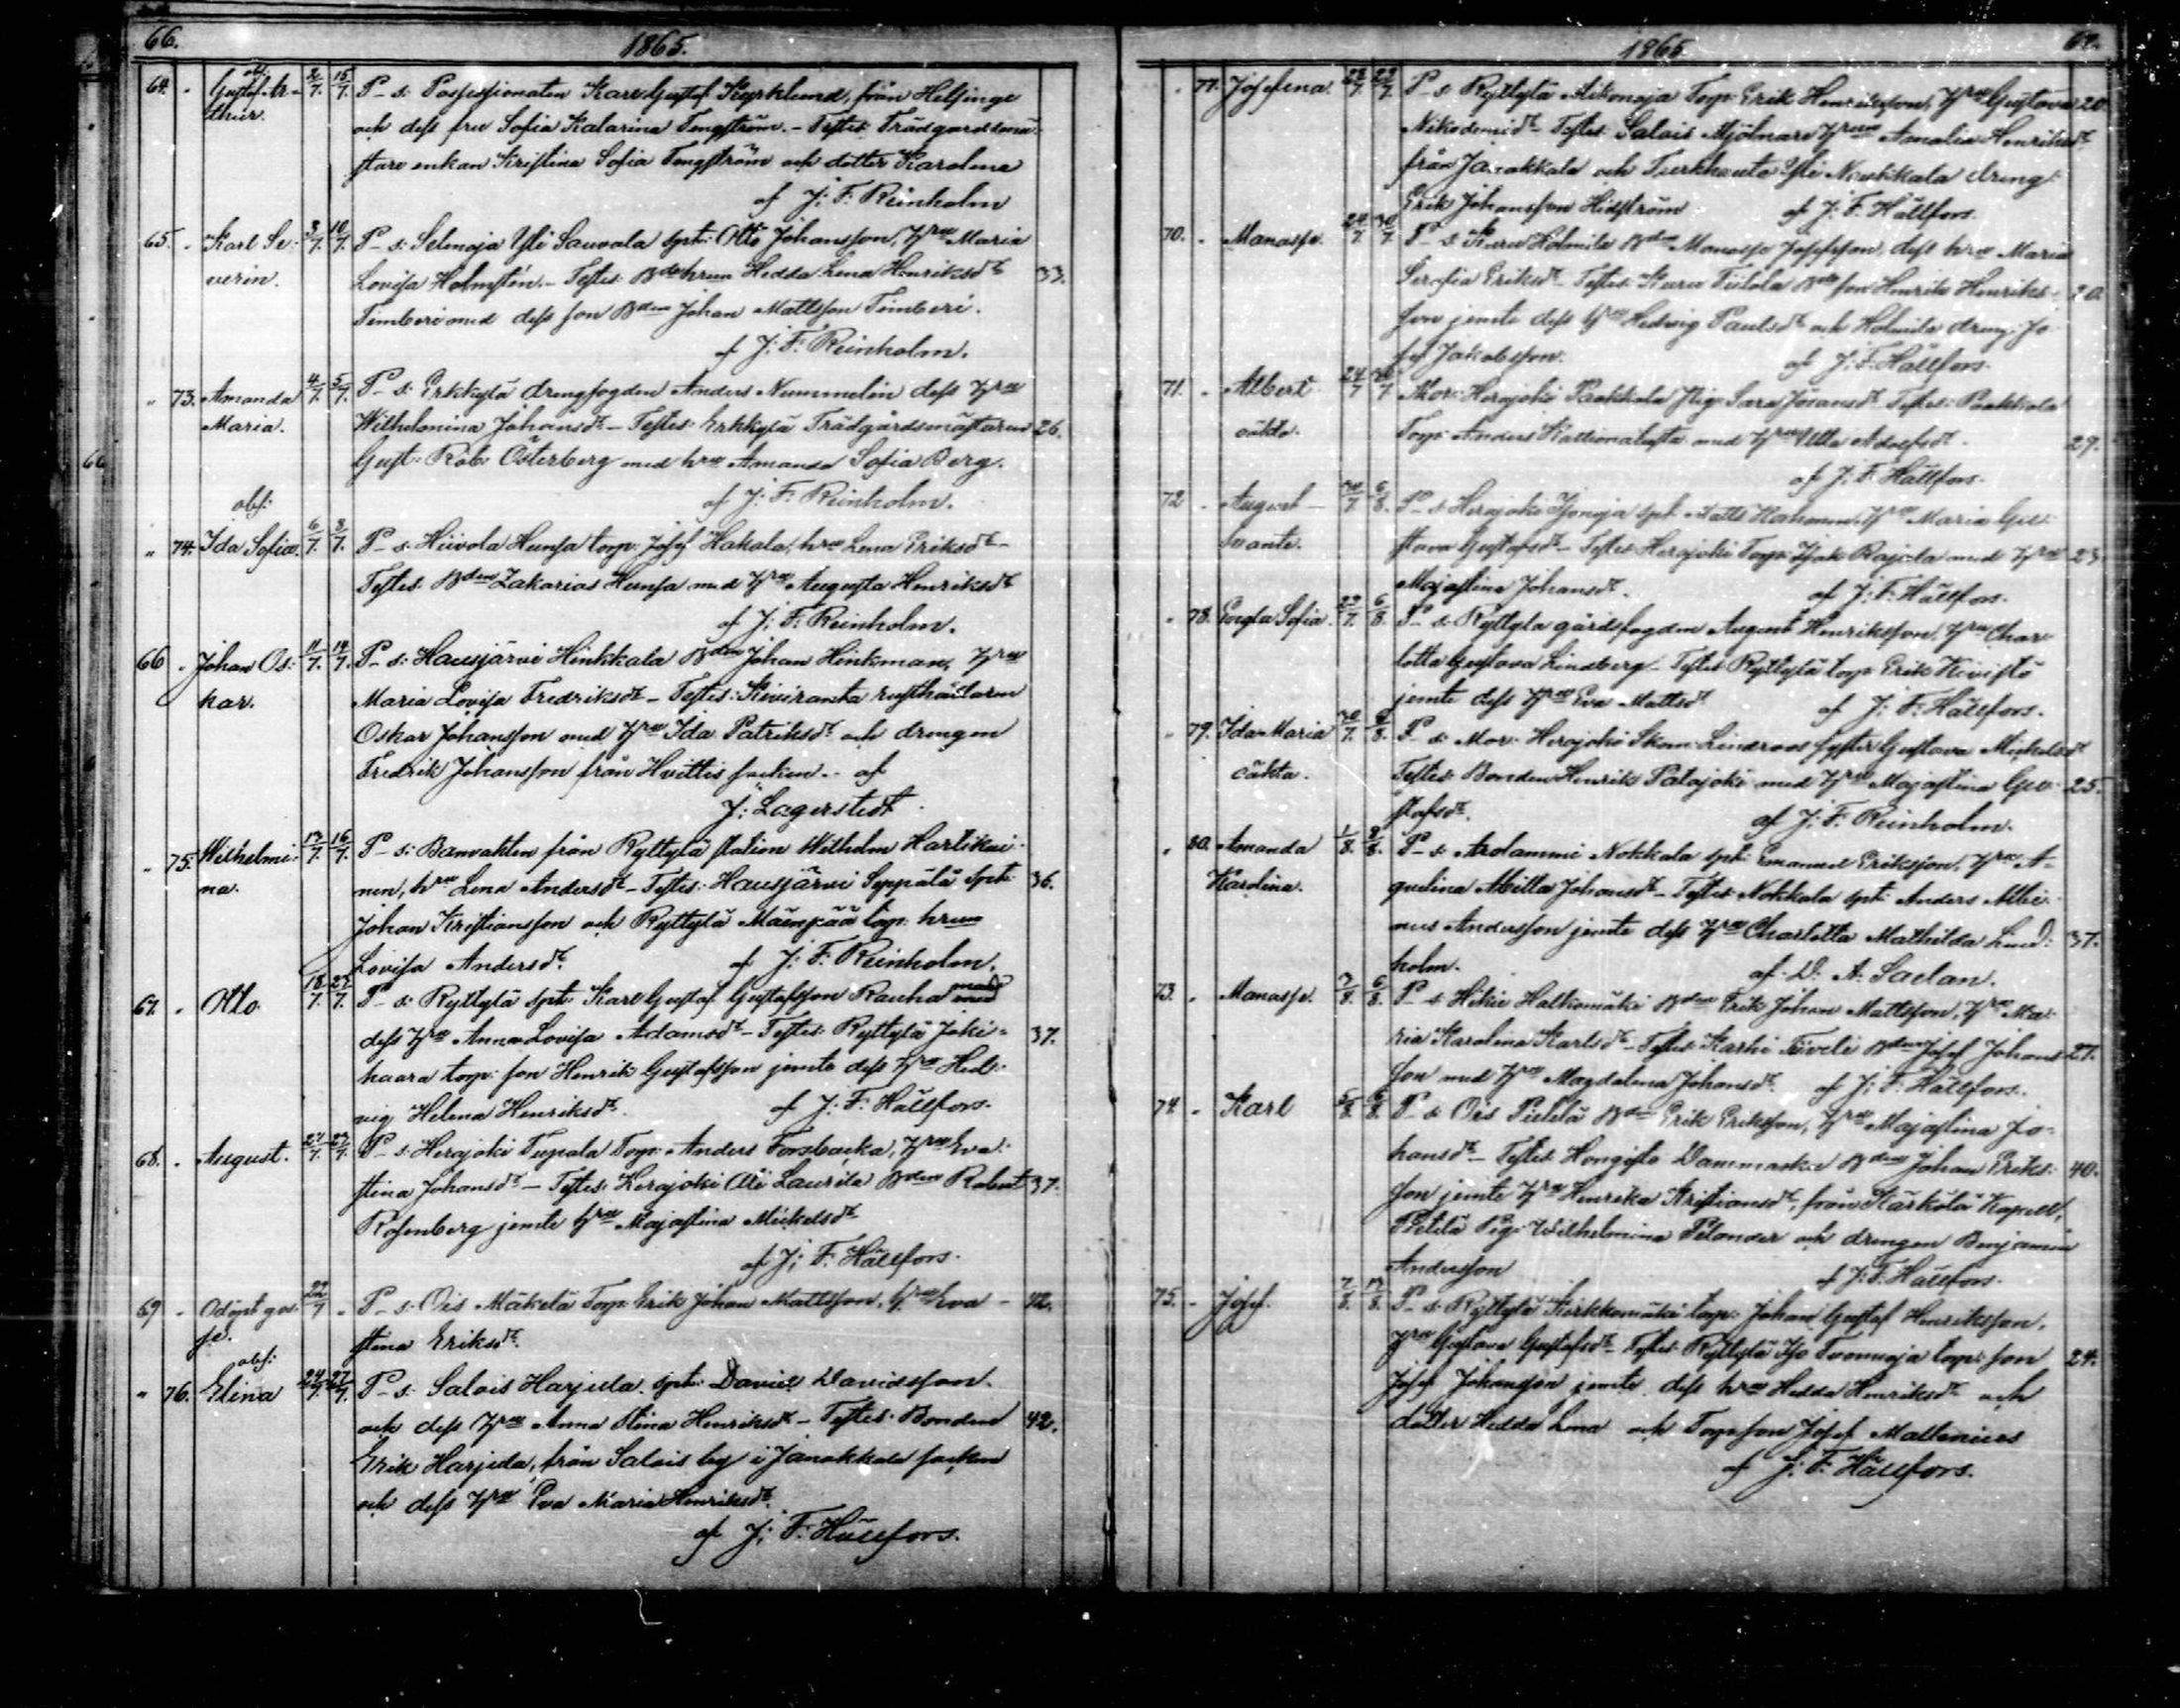 66.
1865.
64. Gustaf Ar- 2/7. 15/7. P. s: Possessionaten Karl Gustaf Kyrklund, från Helsinge
obs.
thur. och dess fru Sofia Katarina Tengström. - Testes: Trädgårdsmä-
stare enkan Kristina Sofia Tengström och dotter Karolina
af J: F: Reinholm
65. Karl Se- 3/7. 10/7. P. s: Selmoja Yli Sauvala spt: Otto Johansson, hru Maria
verin. Lovisa Holmstén. - Testes: Bde hrun Hedda Lena Henriksdr 33.
Timberi med dess son Bden Johan Mattsson Timberi.
af J: F: Reinholm.
" 73. Amanda 4/7. 5/7. P. s: Erkkylä drengfogden Anders Nummelin dess hru
Maria. Wilhelmina Johansdr - Testes: Erkkylä Trädgårdsmästaren 26.
Gust: Rob: Österberg med hru Amanda Sofia Berg.
af J: F: Reinholm.
obs:
" 74. Ida Sofia. 6/7. 8/7. P. s: Hiivola Hunsa torp: Josef Hakala, hru Lena Eriksdr -
Testes: Bden Zakarias Hunsa med hru Augusta Henriksdr
af J: F: Reinholm.
66 Johan Os- 11/7. 14/7. P. s: Hausjärvi Hinkkala Bden Johan Hinkman, hru
kar. Maria Lovisa Fredriksdr - Testes: Kiviranta rusthållaren
Oskar Johansson med hru Ida Patriksdr och drengen
Fredrik Johansson från Hvittis socken. - af
J: Lagerstedt
" 75. Wilhelmi- 13/7. 16/7. P. s: Banvakten från Ryttylä station Wilhelm Hartikai-
na. nen, hru Lena Andersdr - Testes: Hausjärvi Seppälä spt: 36.
Johan Kristiansson och Ryttylä Mäenpää torp: hrun
Lovisa Andersdr. af J: F: Reinholm.
67. Otto. 18/7. 23/7. P. s: Ryttylä spt: Karl Gustaf Gustafsson Rauha med
dess hru Anna Lovisa Adamsdr - Testes: Ryttylä Joki- 37.
haara torp: son Henrik Gustafsson jemte dess hru Hed-
vig Helena Henriksdr. af J: F: Hällfors.
68. August. 21/7. 23/7. P. s: Herajoki Tupala Torp: Anders Forsbacka, hru Eva
stina Johansdr - Testes: Herajoki Ali Laurila Bden Robert 37.
Rosenberg jemte hru Majastina Mickelsdr
af J: F: Hällfors.
69 Odöpt gos- 22/7 P. s: Ois Mäkelä Torp: Erik Johan Mattsson, hru Eva - 42.
se. stina Eriksdr.
obs:
" 76. Elina 24/7. 27/7. P. s: Salois Harjula spt: David Davidsson
och dess hru Anna Stina Henriksdr - Testes: Bonden 42.
Erik Harjula, från Salois by i Janakkala socken
och dess hru Eva Maria Henriksdr.
af J: F: Hällfors.
1865
67.
77. Josefina P. s: Ryttylä Torp: Erik Henriksson, hru Gustava 20
Nikodemidr - Testes: Salois Mjölnare hrun Amalia Henriksdr
från Janakkala och Turkhauta Yli Noukkala dreng
Erik Johansson Hidström af J: F: Hällfors.
70. Manasse. 24/7 30/7 P. s: Karu Holmila Bden Manasse Josefsson, dess hru Maria
Serafia Eriksdr - Testes: Karu Tiilola Bde son Henrik Henriks- 20.
son jemte dess hru Hedvig Paulsdr och Holmila dreng: Jo-
sef Jakobsson. af J: F: Hällfors.
71. Albert 24/7 30/7 Mor: Herajoki Paakkala Pig: Sara Johansdr Testes: Paakkala
oäkta. Torp: Anders med hru Ulla Adolfsdr. 29.
af J: F: Hällfors.
72 August 6/8. P. s: Herajoki spt: Matts hru Maria Gu-
Svante. stava Gustafsdr - Testes: Herajoki Torp: Isak Rajala med hru 23
Majastina Johansdr. af J: F: Hällfors.
" 78. Engla Sofia. 29/7. 6/8. P. s: Ryttylä gårdsfogden August Henriksson, hru Char-
lotta Gustava Lindberg - Testes: Ryttylä torp: Erik Kivistö
jemte dess hru Eva Mattsdr af J: F: Hällfors.
" 79. Ida Maria 30/7. P. s: Mor: Herajoki Skom: Lindroos syster Gustava Mickelsdr
oäkta. Testes: Bonden Henrik Palajoki med hru Majastina Gu- 25.
stafsdr. af J: F: Reinholm.
" 80. Amanda 1/8. P. s: Arolammi Nokkala spt: Emanuel Eriksson, hru A-
Karolina. quelina Milla Johansdr - Testes: Nokkala spt: Anders Albi-
nus Andersson jemte dess hru Charlotta Mathilda Lind- 37.
holm. af D. A. Saelan.
73. Manasse. 3/8. 6/8. P. s: Hikie Halkomäki Bden Erik Johan Mattsson, hru Ma-
ria Karolina Karlsdr - Testes: Karhi Bden Josef Johans- 27.
son med hru Magdalena Johansdr. af J: F: Hällfors.
74. Karl 5/8. 6/8. P. s: Ois Pietilä Bden Erik Eriksson, hru Majastina Jo-
hansdr - Testes: Hongisto Bden Johan Eriks- 40.
son jemte hru Henrika Kristiansdr, från Kärkölä Kapell,
Pietilä Pig: Wilhelmina Pelander och drengen Benjamin
Andersson af J: F: Hällfors.
75. Josef. 7/8. 13/8. P. s: Ryttylä Kirkkomäki torp: Johan Gustaf Henriksson,
hru Gustava Gustafsdr - Testes: Ryttylä Iso torp: son 24.
Josef Johansson jemte dess hru Hedda Henriksdr och
dotter Hedda Lena och Torp: son Josef Mattenius
af J: F: Hällfors.